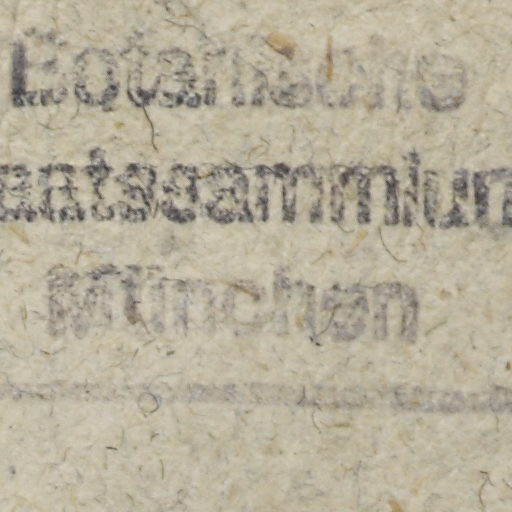 Botanische
aatssammlun
München